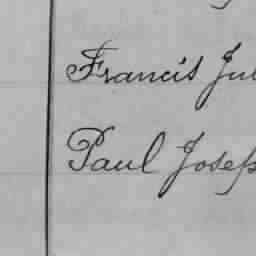 Francis Jul
Paul Josep